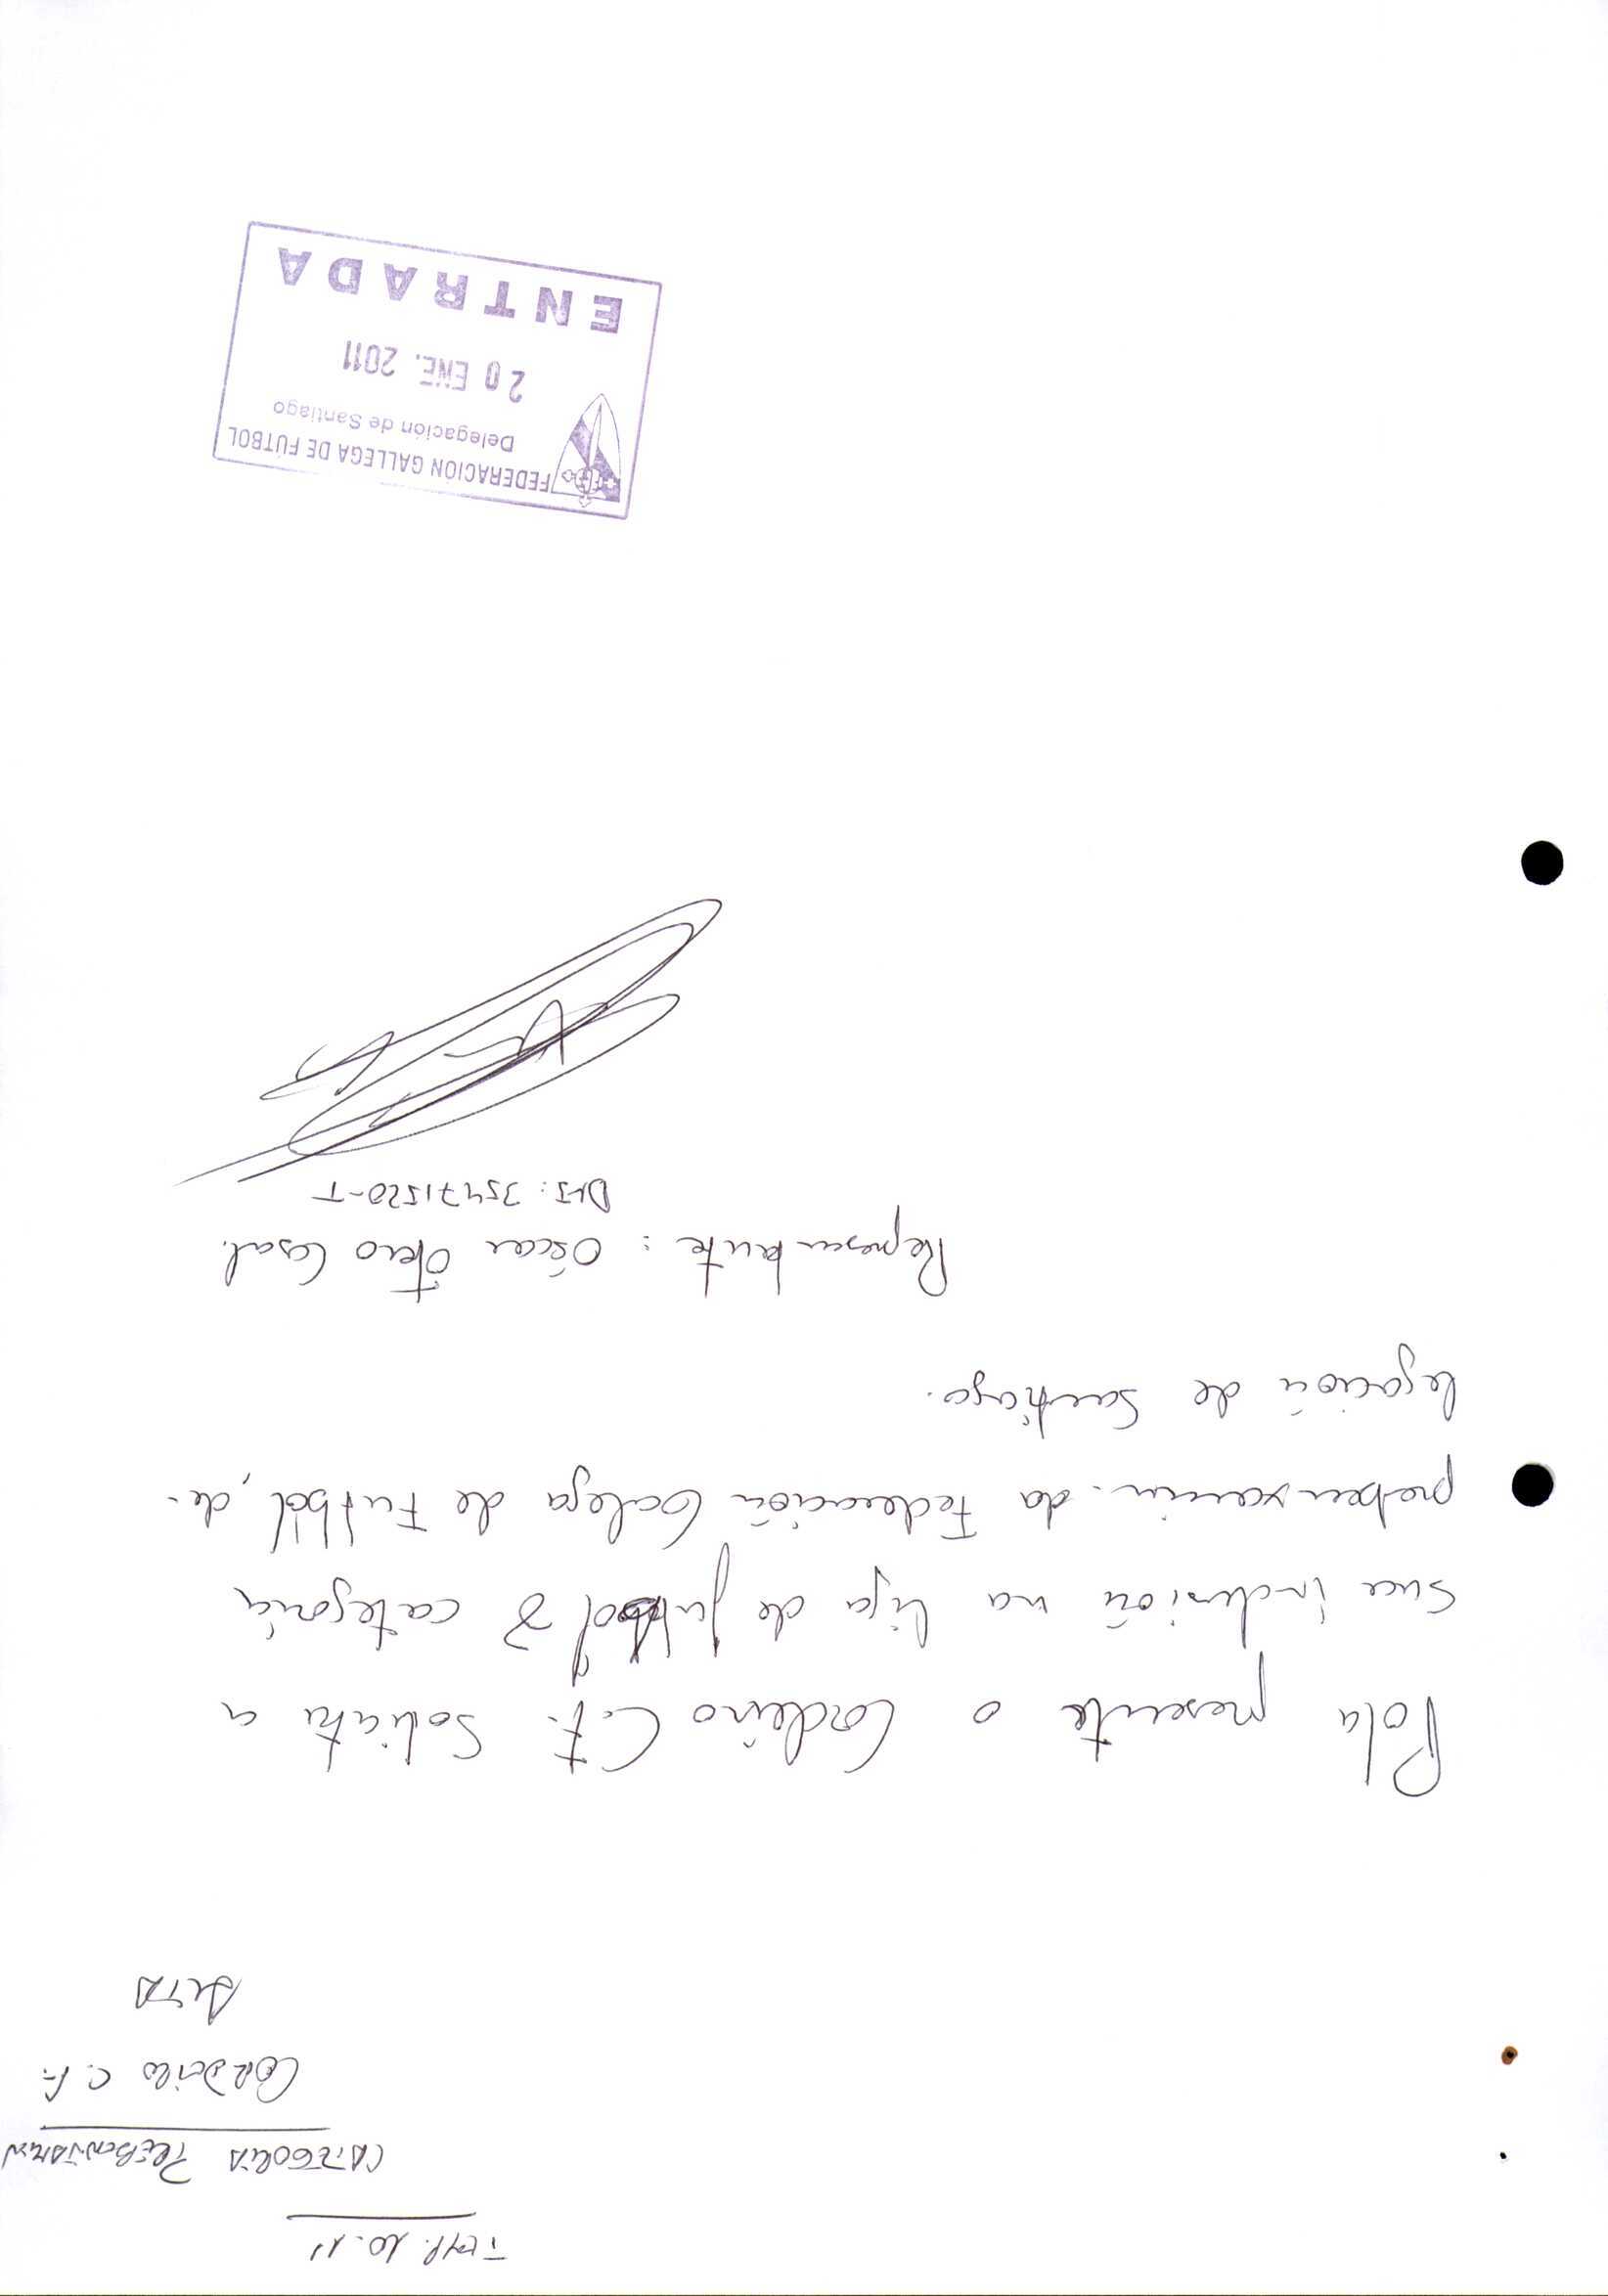 Temp. 10-11
CATEGORIA PREBENJAMIN
CORDEIRO C.F.
ALTA
Pola presente o Cordeiro C.F. solicita a
sua inclusión na liga de futbol 8 categoría
prebenxamín da Federación Galega de Futbol, de-
legación de Santiago.
Representante: Oscar Otero Casal.
DNI: 35471520-T
FEDERACIÓN GALLEGA DE FÚTBOL
Delegación de Santiago
20 ENE. 2011
ENTRADA